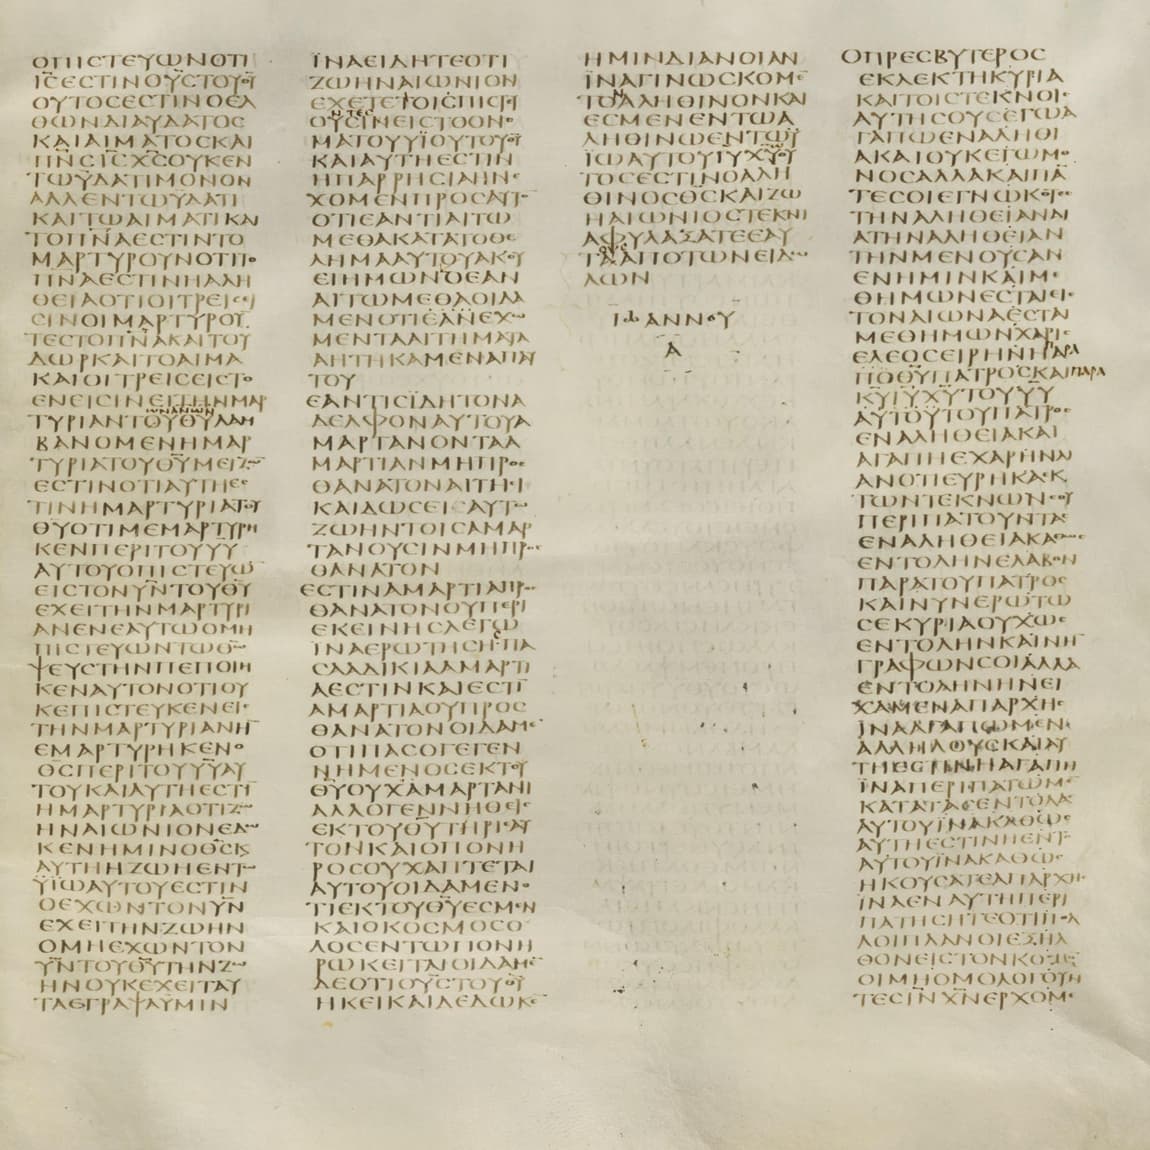 ΟΠΙCΤΕΥΩΝΟΤΙ
ΙCΕCΤΙΝΟΥCΤΟΥΘΥ
ΟΥΤΟCΕCΤΙΝΟΕΛ
ΘΩΝΔΙΑΥΔΑΤΟC
ΚΑΙΑΙΜΑΤΟCΚΑΙ
ΠΝCΙCΧCΟΥΚΕΝ
ΤΩΥΔΑΤΙΜΟΝΟΝ
ΑΛΛΕΝΤΩΥΔΑΤΙ
ΚΑΙΤΩΑΙΜΑΤΙΚΑΙ
ΤΟΠΝΑΕCΤΙΝΤΟ
ΜΑΡΤΥΡΟΥΝΟΤΙΤΟ
ΠΝΑΕCΤΙΝΗΑΛΗ
ΘΕΙΑΟΤΙΟΙΤΡΕΙCΕΙ
CΙΝΟΙΜΑΡΤΥΡΟΥ
ΤΕCΤΟΠΝΑΚΑΙΤΟΥ
ΔΩΡΚΑΙΤΟΑΙΜΑ
ΚΑΙΟΙΤΡΕΙCΕΙCΤΟ
ΕΝΕΙCΙΝΕΙΤΗΝΜΑΡ
ΤΥΡΙΑΝΤΟΥΘΥΛΑΜ
ΒΑΝΟΜΕΝΗΜΑΡ
ΤΥΡΙΑΤΟΥΘΥΜΕΙΖΩ
ΕCΤΙΝΟΤΙΑΥΤΗΕC
ΤΙΝΗΜΑΡΤΥΡΙΑΤΟΥ
ΘΥΟΤΙΜΕΜΑΡΤΥΡΗ
ΚΕΝΠΕΡΙΤΟΥΥΥ
ΑΥΤΟΥΟΠΙCΤΕΥΩ
ΕΙCΤΟΝΥΝΤΟΥΘΥ
ΕΧΕΙΤΗΝΜΑΡΤΥΡΙ
ΑΝΕΝΕΑΥΤΩΟΜΗ
ΠΙCΤΕΥΩΝΤΩΘΩ
ΨΕΥCΤΗΝΠΕΠΟΙΗ
ΚΕΝΑΥΤΟΝΟΤΙΟΥ
ΚΕΠΙCΤΕΥΚΕΝΕΙC
ΤΗΝΜΑΡΤΥΡΙΑΝΗ
ΕΜΑΡΤΥΡΗΚΕΝΟ
ΘCΠΕΡΙΤΟΥΥΥΑΥ
ΤΟΥΚΑΙΑΥΤΗΕCΤΙ
ΗΜΑΡΤΥΡΙΑΟΤΙΖΩ
ΗΝΑΙΩΝΙΟΝΕΔΩ
ΚΕΝΗΜΙΝΟΘCΚ
ΑΥΤΗΗΖΩΗΕΝΤΩ
ΥΙΩΑΥΤΟΥΕCΤΙΝ
ΟΕΧΩΝΤΟΝΥΝ
ΕΧΕΙΤΗΝΖΩΗΝ
ΟΜΗΕΧΩΝΤΟΝ
ΥΝΤΟΥΘΥΤΗΝΖΩ
ΗΝΟΥΚΕΧΕΙΤΑΥ
ΤΑΕΓΡΑΨΑΥΜΙΝ
ΙΝΑΕΙΔΗΤΕΟΤΙ
ΖΩΗΝΑΙΩΝΙΟΝ
ΕΧΕΤΕΤΟΙCΠΙCΤΕΥ
ΟΥCΙΝΕΙCΤΟΟΝΟ
ΜΑΤΟΥΥΙΟΥΤΟΥΘΥ
ΚΑΙΑΥΤΗΕCΤΙΝ
ΗΠΑΡΡΗCΙΑΗΝΕ
ΧΟΜΕΝΠΡΟCΑΥΤΟ
ΟΤΙΕΑΝΤΙΑΙΤΩ
ΜΕΘΑΚΑΤΑΤΟΘΕ
ΛΗΜΑΑΥΤΟΥΑΚΟΥ
ΕΙΗΜΩΝΟΕΑΝ
ΑΙΤΩΜΕΘΑΟΙΔΑ
ΜΕΝΟΤΙΕΑΝΕΧΟ
ΜΕΝΤΑΑΙΤΗΜΑΤΑ
ΑΗΤΗΚΑΜΕΝΑΠΑΥ
ΤΟΥ
ΕΑΝΤΙCΙΔΗΤΟΝΑ
ΔΕΛΦΟΝΑΥΤΟΥΑ
ΜΑΡΤΑΝΟΝΤΑΑ
ΜΑΡΤΙΑΝΜΗΠΡΟC
ΘΑΝΑΤΟΝΑΙΤΗCΙ
ΚΑΙΔΩCΕΙΑΥΤΩ
ΖΩΗΝΤΟΙCΑΜΑΡ
ΤΑΝΟΥCΙΝΜΗΠΡΟC
ΘΑΝΑΤΟΝ
ΕCΤΙΝΑΜΑΡΤΙΑΠΡΟC
ΘΑΝΑΤΟΝΟΥΠΕΡΙ
ΕΚΕΙΝΗCΛΕΓΩ
ΙΝΑΕΡΩΤΗCΗΠΑ
CΑΔΙΚΙΑΑΜΑΡΤΙ
ΑΕCΤΙΝΚΑΙΕCΤΙ
ΑΜΑΡΤΙΑΟΥΠΡΟC
ΘΑΝΑΤΟΝΟΙΔΑΜΕ
ΟΤΙΠΑCΟΓΕΓΕΝ
ΝΗΜΕΝΟCΕΚΤΟΥ
ΘΥΟΥΧΑΜΑΡΤΑΝΙ
ΑΛΛΟΓΕΝΝΗΘΕΙC
ΕΚΤΟΥΘΥΤΗΡΙΑΥ
ΤΟΝΚΑΙΟΠΟΝΗ
ΡΟCΟΥΧΑΠΤΕΤΑΙ
ΑΥΤΟΥΟΙΔΑΜΕΝΟ
ΤΙΕΚΤΟΥΘΥΕCΜΕΝ
ΚΑΙΟΚΟCΜΟCΟ
ΛΟCΕΝΤΩΠΟΝΗ
ΡΩΚΕΙΤΑΙΟΙΔΑΜΕ
ΔΕΟΤΙΟΥCΤΟΥΘΥ
ΗΚΕΙΚΑΙΔΕΔΩΚΕ
ΗΜΙΝΔΙΑΝΟΙΑΝ
ΙΝΑΓΙΝΩCΚΟΜΕ
ΤΟΑΛΗΘΙΝΟΝΚΑΙ
ΕCΜΕΝΕΝΤΩΑ
ΛΗΘΙΝΩΕΝΤΩΥ
ΙΩΑΥΤΟΥΙΥΧΥΟΥ
ΤΟCΕCΤΙΝΟΑΛΗ
ΘΙΝΟCΘCΚΑΙΖΩ
ΗΑΙΩΝΙΟCΤΕΚΝΙ
ΑΦΥΛΑΞΑΤΕΕΑΥ
ΤΑΑΠΟΤΩΝΕΙΔΩ
ΛΩΝ
ΙΩΑΝΝΟΥ
Α
ΟΠΡΕCΒΥΤΕΡΟC
ΕΚΛΕΚΤΗΚΥΡΙΑ
ΚΑΙΤΟΙCΤΕΚΝΟΙC
ΑΥΤΗCΟΥCΕΓΩΑ
ΓΑΠΩΕΝΑΛΗΘΙ
ΑΚΑΙΟΥΚΕΓΩΜΟ
ΝΟCΑΛΛΑΚΑΙΠΑ
ΤΕCΟΙΕΓΝΩΚΟΤΕC
ΤΗΝΑΛΗΘΕΙΑΝΔΙ
ΑΤΗΝΑΛΗΘΕΙΑΝ
ΤΗΝΜΕΝΟΥCΑΝ
ΕΝΗΜΙΝΚΑΙΜΕ
ΘΗΜΩΝΕCΤΑΙΕΙC
ΤΟΝΑΙΩΝΑΕCΤΑΙ
ΜΕΘΗΜΩΝΧΑΡΙC
ΕΛΕΟCΕΙΡΗΝΗΠΑΡΑ
ΠΟΘΥΠΑΤΡΟCΚΑΙΠΑΡΑ
ΚΥΙΥΧΥΤΟΥΥΥ
ΑΥΤΟΥΤΟΥΠΑΤΡΟC
ΕΝΑΛΗΘΕΙΑΚΑΙ
ΑΓΑΠΗΕΧΑΡΗΝΛΙ
ΑΝΟΤΙΕΥΡΗΚΑΕΚ
ΤΩΝΤΕΚΝΩΝCΟΥ
ΠΕΡΙΠΑΤΟΥΝΤΑC
ΕΝΑΛΗΘΕΙΑΚΑΘΩC
ΕΝΤΟΛΗΝΕΛΑΒΟΝ
ΠΑΡΑΤΟΥΠΑΤΡΟC
ΚΑΙΝΥΝΕΡΩΤΩ
CΕΚΥΡΙΑΟΥΧΩC
ΕΝΤΟΛΗΝΚΑΙΝΗ
ΓΡΑΦΩΝCΟΙΑΛΛΑ
ΕΝΤΟΛΗΝΗΝΕΙ
ΧΑΜΕΝΑΠΑΡΧΗC
ΙΝΑΑΓΑΠΩΜΕΝ
ΑΛΛΗΛΟΥCΚΑΙΑΥ
ΤΗΕCΤΙΝΗΑΓΑΠΗ
ΙΝΑΠΕΡΙΠΑΤΩΜΕ
ΚΑΤΑΤΑCΕΝΤΟΛΑC
ΑΥΤΟΥΙΝΑΚΑΘΩC
ΑΥΤΗΕCΤΙΝΗΕΝΤ
ΑΥΤΟΥΙΝΑΚΑΘΩC
ΗΚΟΥCΑΤΕΑΠΑΡΧΗC
ΙΝΑΕΝΑΥΤΗΠΕΡΙ
ΠΑΤΗCΗΤΕΟΤΙΠΟΛ
ΛΟΙΠΛΑΝΟΙΕΞΗΛ
ΘΟΝΕΙCΤΟΝΚΟCΜΟ
ΟΙΜΗΟΜΟΛΟΓΟΥΝ
ΤΕCΙΝΧΝΕΡΧΟΜΕ